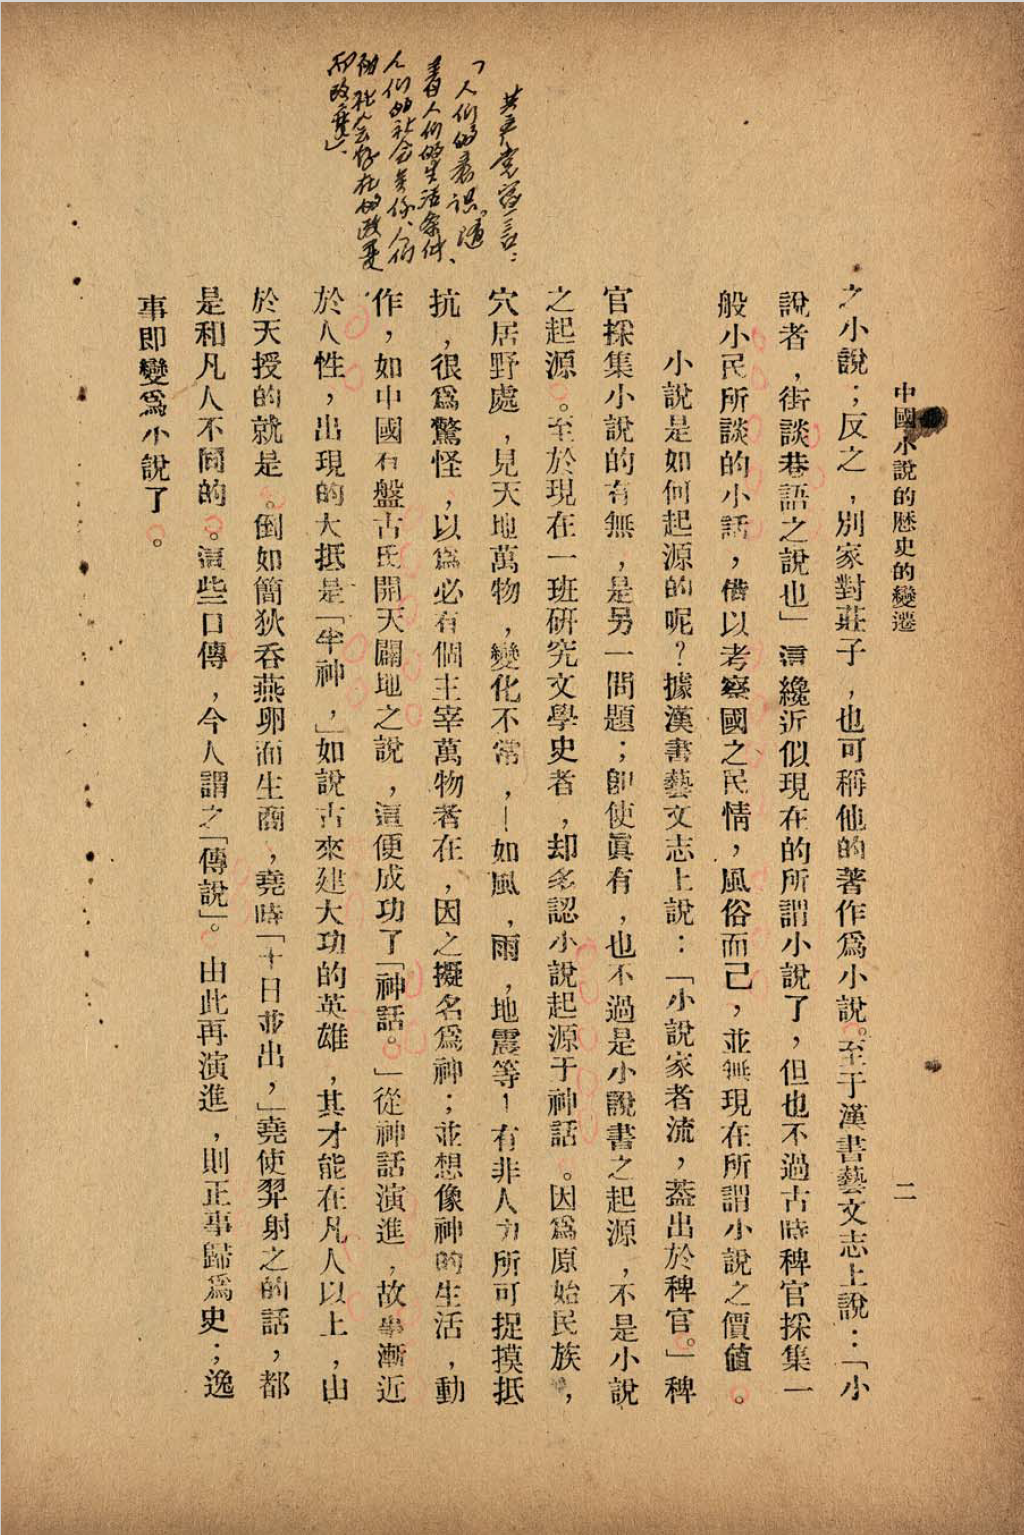 中國小說的歷史的變遷
二
共产党宣言：
「人们的意识，随
着人们的生活条件、
人们的社会关系、人们
的社会存在的改变
而改变」、
之小說；反之，別家對莊子，也可稱他的著作爲小說。至于漢書藝文志上說：「小
說者，街談巷語之說也」這纔近似現在的所謂小說了，但也不過古時稗官採集一
般小民所談的小話，借以考察國之民情，風俗而已，並無現在所謂小說之價值。
小說是如何起源的呢？據漢書藝文志上說：「小說家者流，蓋出於稗官。」稗
官採集小說的有無，是另一問題；即使眞有，也不過是小說書之起源，不是小說
之起源。至於現在一班研究文學史者，却多認小說起源于神話。因爲原始民族，
穴居野處，見天地萬物，變化不常，—如風，雨，地震等—有非人力所可捉摸抵
抗，很爲驚怪，以爲必有個主宰萬物者在，因之擬名爲神；並想像神的生活，動
作，如中國有盤古氏開天闢地之說，這便成功了「神話。」從神話演進，故事漸近
於人性，出現的大抵是「半神，」如說古來建大功的英雄，其才能在凡人以上，由
於天授的就是。倒如簡狄吞燕卵而生商，堯時「十日並出，」堯使羿射之的話，都
是和凡人不同的。這些口傳，今人謂之「傳說」。由此再演進，則正事歸爲史；逸
事即變爲小說了。